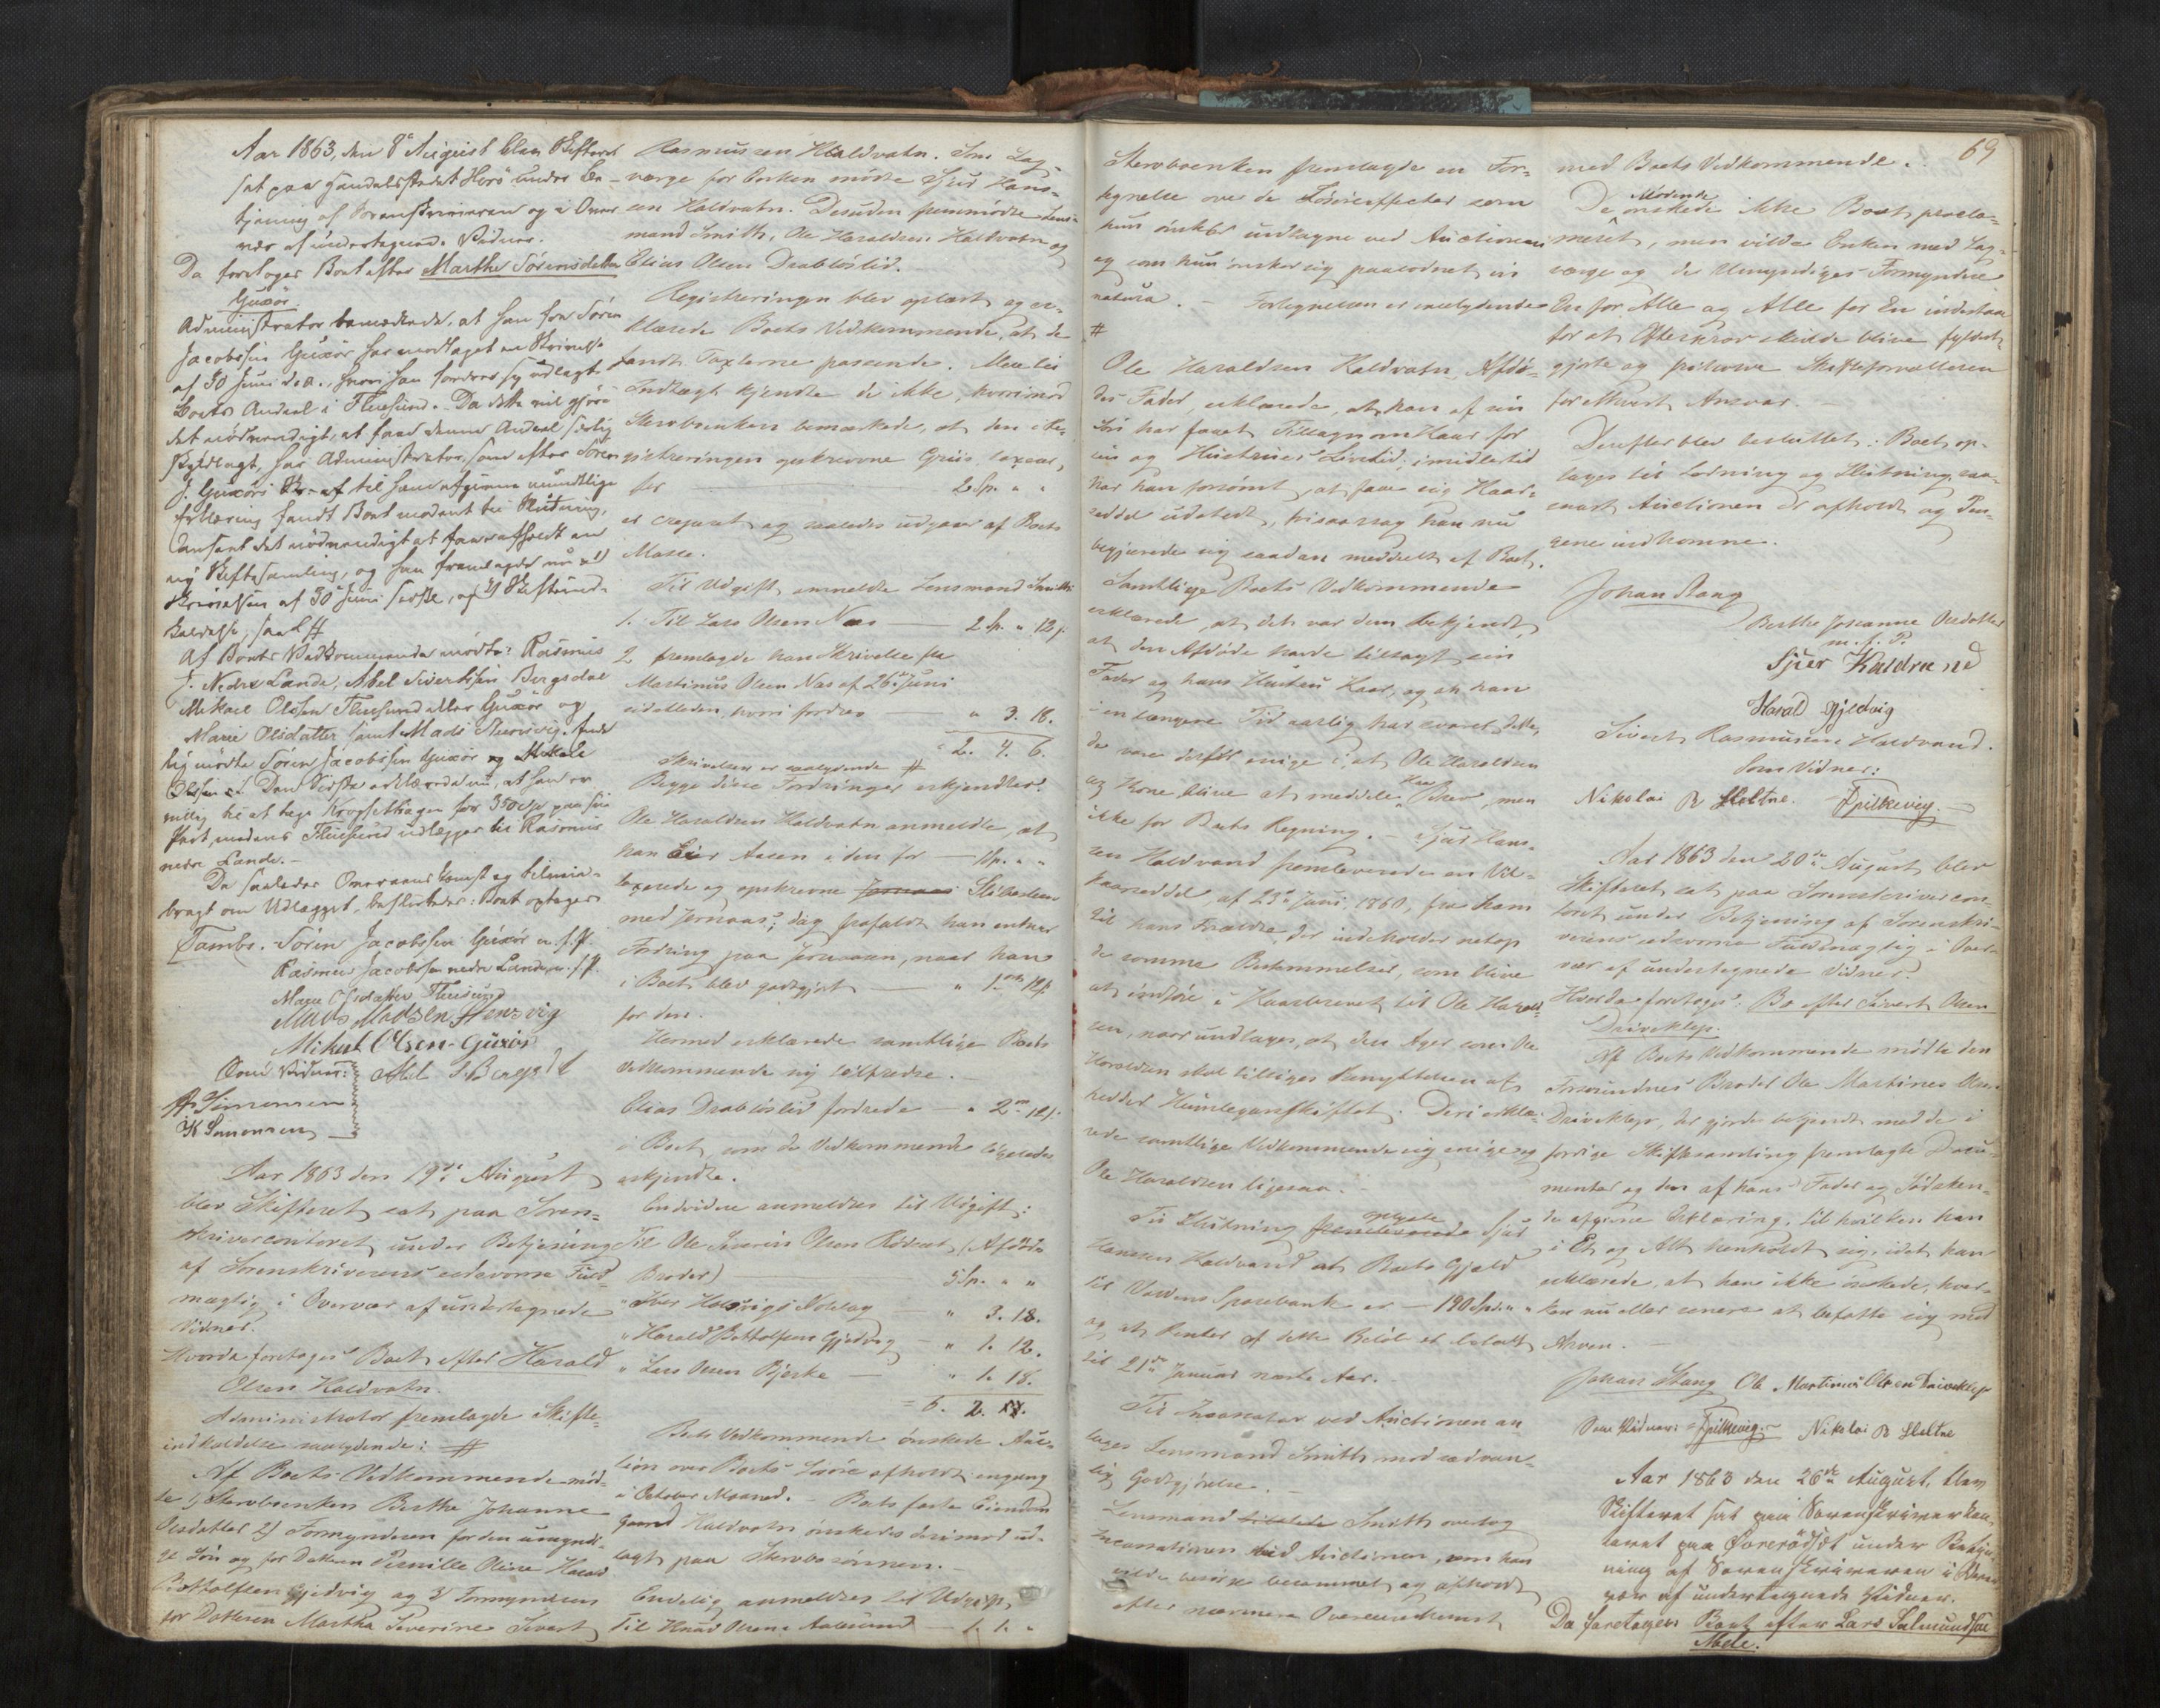 Aar 1863, den 8de August blev Skifteret
sat paa Handelsstedet Herö under Be-
tjening af Sorenskriveren og i Over
vær af undertegnede Vidner.
Da foretoges Boet efter Marthe Sörensdatter
Guxör.
Administrator bemærkede, at han fra Sören
Jacobsen Guxör har modtaget en Skrivelse
af 30 Juni d. a., hvori han fordrer sig udlagt
Boets Andeel i Fluesund. Da dette vil gjöre
det nödvendigt, at faae denne Andeel særlig
skyldlagt, har Administrator, som efter Sören
J. Guxörs til ham afgivne mundtlige
Erklæring fandt Boet modent til Slutning,
anseet det nödvendigt at faae afholdt en
ny Skiftesamling, og han fremlagde nu 1)
Skrivelsen af 30 Juni sidste, og 2) Skifteind-
kaldelse, saal #
Af Boets Vedkommende mödte: Rasmus
J. Nedre Lande, Abel Sivertsen Bergsdal
Mikael Olsen Fluesund eller Guxör og
Marie Olsdatter samt Mads Stensvig. Ende
lig mödte Sören Jacobsen Guxör og Mikale
Olsen Den Sidste erklærede nu, at han er
villig til at tage Krogsethagen for 350 paa sin
Part, medens Fluesund udlægges til Rasmus
nedre Lande. -
Da saaledes Overeenskomst og tilveie-
bragt om Udlægget, besluttedes: Boet optages
Tambs. Sören Jacobsen Guxör m. f. P.
Rasmus Jacobsen nedre Lande m. f. P.
Marie Olsdatter Fluesund
Mads Madsen Stensvig
Mikael Olsen Guxör
Som Vidner: Abel S. Bergsdal
A Simonsen
K Simonsen
Aar 1863 den 19de August
blev Skifteret sat paa Soren-
skrivercontoret under Betjening
af Sorenskriverens edsvorne Fuld-
mægtig i Overvær af undertegnede
Vidner.
Hvorda foretoges Boet efter Harald
Olsen Haldvatn.
Administrator fremlagde Skifte-
indkaldelse saalydende: #
Af Boets Vedkommende möd-
te 1) Stervboenken Berthe Johanne
Olsdatter 2) Formynderen for den umyndi-
ge Sön og for Datteren Pernille Oline Harald
Bottolfsen Gjedvig og 3) Formynderen
for Datteren Martha Severine Sivert
Rasmussen Haldvatn. Som Lag-
værge for Enken mödte Sjur Hans-
sen Haldvatn. Desuden fremmödte Lens-
mand Smith, Ole Haraldsen Haldvatn og
Elias Olsen Drablöslid.
Registreringen blev oplæst og er-
klærede Boets Vedkommende, at de
fandt Taxterne passende. Mere til
Indtægt kjendte de ikke, hvorimod
Stervboenken bemærkede, at den i Re-
gistreringen opskrevne Griis taxeret
for - 2 Sp. " "
er creperet og saaledes udgaaer af Boets
Masse.
Til Udgift anmeldte Lensmand Smith:
1. Til Lars Olsen Næs - 2 Sp. " 12 s.
2 fremlagde han Skrivelse fra
Martinus Olsen Næs af 26de Juni
sidstleden, hvori fordres - " 3. 18.
2. 4. 6.
Skrivelsen er saalydende #
Begge disse Fordringer erkjendtes.
Ole Haraldsen Haldvatn anmeldte, at
han Eier Aasen i den for 1 Sp. " "
taxerede og opskrevne Jernaas Stibestem
med Jernaas; dog frafaldt han enhver
Fordring paa Jernaasen, naar han
i Boet blev godtgjort - " 1 ort 12 s.
for den.
Hermed erklærede samtlige Boets
Vedkommende sig tilfredse. -
Elias Drablöslid fordrede - " 2 m 12 s.
i Boet, som de Vedkommende ligeledes
erkjendte.
Endvidere anmeldtes til Udgift:
Til Ole Severin Olsen Rödset (Afdödes
Broder) - 5 Sp. " "
" Iver Holsvigs Nolelag " 3. 18.
" Harald Bottolfsen Gjedvig - " 1. 12.
" Lars Olsen Bjerke - " 1. 18.
= 6. 2. XX.
Boets Vedkommende önskede Auc-
tion over Boets Lösöre afholdt engang
i October Maaned. - Boets faste Eiendom
Gaard Haldvatn önskedes derimod ud-
lagt paa Stervbosönnen. -
Endelig anmeldtes til Udgift,
Til Knud Olsen Aalesund - 1. 1. "
Stervboenken fremlagde en For-
tegnelse over de Lösöreeffecter som
hun önsker undtagne ved Auctionen
og som hun önsker sig paalodnet in
natura. - Fortegnelsen er saalydende
#
Ole Haraldsen Haldvatn, Afdö-
des Fader, erklærede, at han af sin
Sön har faaet Tillagn om Kaar for
sin og Hustrues Livstid; imidlertid
har han forsömt, at faae sig Kaar-
seddel udstedt, hvisaarsag han nu
begjærede sig saadan meddeelt af Boet.
Samtlige Boets Vedkommende
erklærede, at det var dem bekjendt,
at den Afdöde havde tilsagt sin
Fader og hans Hustru Kaar, og at han
i en længere Tid aarlig har svaret dette,
de vare derfor enige i, at Ole Haraldsen
og Kone blive at meddele Kaar Brev, men
ikke for Boets Regning. - Sjur Hans-
sen Haldvand fremleverede en Vil-
kaarseddel, af 23de Juni 1860, fra ham
til hans Forældre, der indeholder netop
de samme Bestemmelser, som blive
at indföre i Kaarbrevet til Ole Harald-
sen, naar undtages, at den Ager som Ole
Haraldsen skal tilliges Benyttelsen af
hedder Humlegarsskiftet. Deri erklæ-
rede samtlige Vedkommende sig enige og
Ole Haraldsen ligesaa. -
Til Slutning fremleverede oplyste Sjur
Hanssen Haldvand at Boets Gjeld
til Voldens Sparebank er - 190 Spd. " "
og at Renter af dette Belöb er betalt
til 21de Januar næste Aar. -
Til Incassator ved Auctionen an
tages Lensmand Smith mod sædvan-
lig Godtgjörelse. -
Lensmand Smith overtog
Incassationen ved Auctionen, som han
vilde besörge berammet og afholdt
efter nærmere Overeenskomst
69
med Boets Vedkommende.
De Mödende önskede ikke Boet procla-
meret, men vilde Enken med Lag-
værge og de Umyndiges Formyndere
En for Alle og Alle for En indestaae
for at Efterkrav skulde blive fyldest-
gjorte og fritoge Skifteforvalteren
for ethvert Ansvar. -
Derefter blev besluttet: Boet op-
tages til Lodning og Slutning, saa-
snart Auctionen er afholdt og Pen-
gene indkomne.
Johan Stang
Berthe Joseanne Olsdatter
m. f. P.
Sjuer Haldvand
Harald Gjedvig
Sivert Rasmussen Haldvand.
Som Vidner:
Nikolai R Holtne. Spilkevig.
Aar 1863 den 20de August blev
Skifteret sat paa Sorenskrivercon-
toret under Betjening af Sorenskri-
verens edsvorne Fuldmægtig i Over-
vær af undertegnede Vidner.
Hvorda foretoges: Bo efter Sivert Olsen
Driveklep.
Af Boets Vedkommende mödte den
Forsvundnes Broder Ole Martinus Olsen
Driveklep, der gjorde bekjendt med de i
forrige Skiftesamling fremlagte Docu-
menter og den af hans Fader og Södsken-
de afgivne Erklæring, til hvilken han
i Et og Alt henholdt sig, idet han
erklærede, at han ikke önskede, hver-
ken nu eller senere at befatte sig med
Arven. -
Johan Stang Ole Martinus Olsen Driveklep
Som Vidner: Spilkevig. Nikolai R Holtne
Aar 1863 den 26de August, blev
Skifteret sat paa Sorenskriverkon-
toret paa Övrerödset under Betje-
ning af Sorenskriveren i Over-
vær af undertegnede Vidner.
Da foretoges Boet efter Lars Salmundsen
Mele.